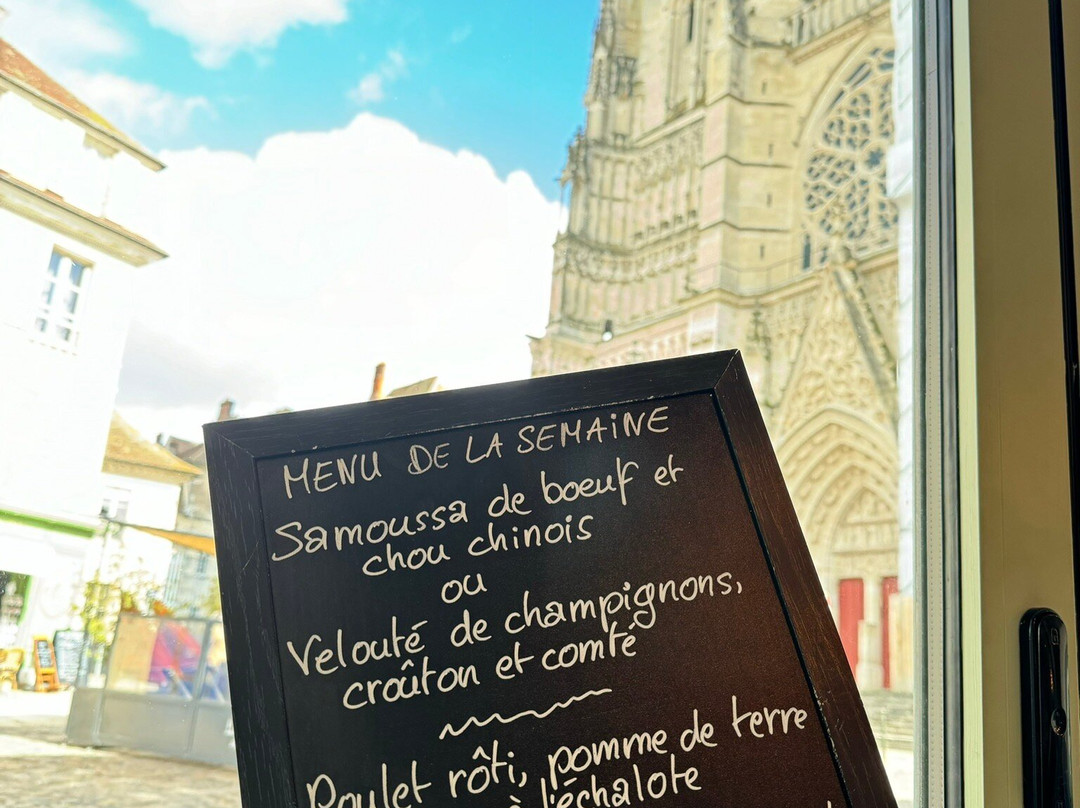 MENU DE LA SEMAiNE
Samoussa de boeuf et
chou chinois
ou
Velouté de champignons,
croûton et comté
Poulet rôti, pomme de terre
à l'échalote